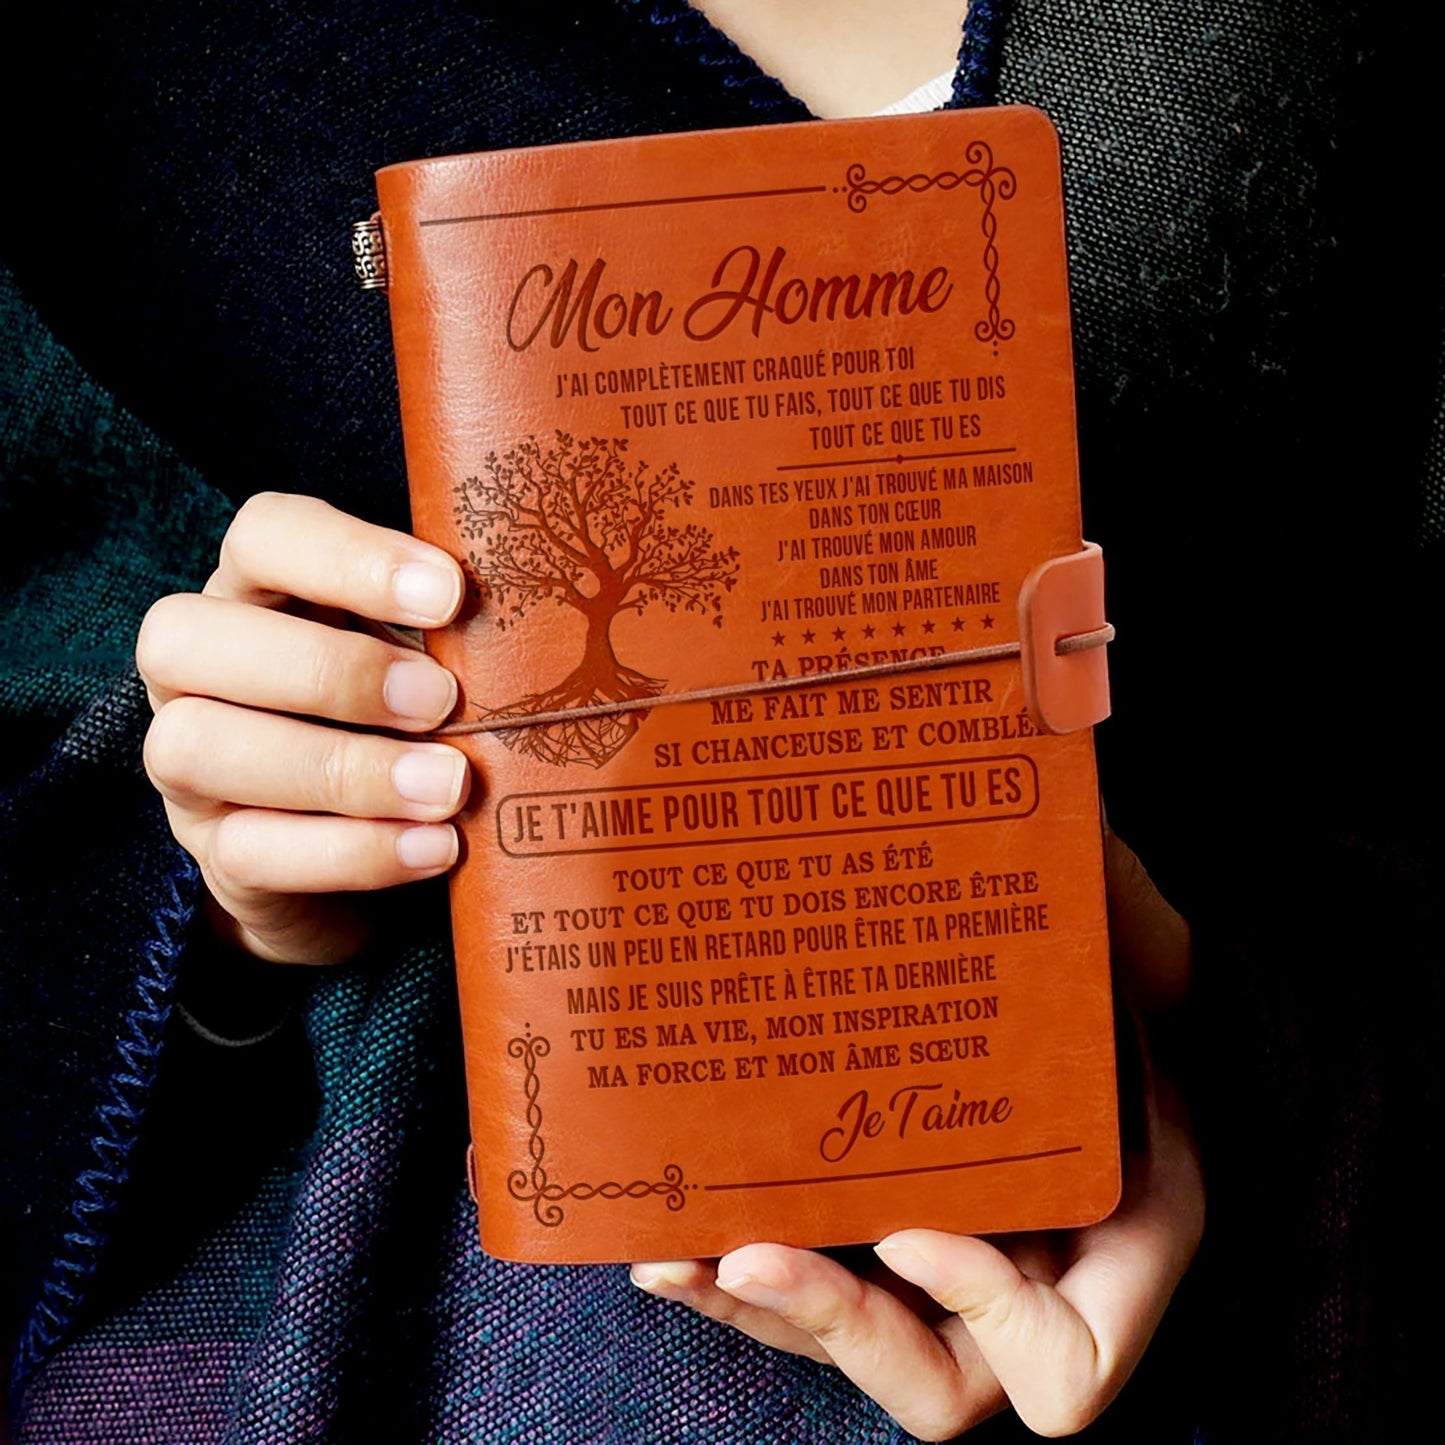 Mon Homme
J'AI COMPLÈTEMENT CRAQUÉ POUR TOI
TOUT CE QUE TU FAIS, TOUT CE QUE TU DIS
TOUT CE QUE TU ES
DANS TES YEUX J'AI TROUVÉ MA MAISON
DANS TON CŒUR
J'AI TROUVÉ MON AMOUR
DANS TON ÂME
J'AI TROUVÉ MON PARTENAIRE
TA PRÉSENCE
ME FAIT ME SENTIR
SI CHANCEUSE ET COMBLÉE
JE T'AIME POUR TOUT CE QUE TU ES
TOUT CE QUE TU AS ÉTÉ
ET TOUT CE QUE TU DOIS ENCORE ÊTRE
J'ÉTAIS UN PEU EN RETARD POUR ÊTRE TA PREMIÈRE
MAIS JE SUIS PRÊTE À ÊTRE TA DERNIÈRE
TU ES MA VIE, MON INSPIRATION
MA FORCE ET MON ÂME SŒUR
Je T'aime